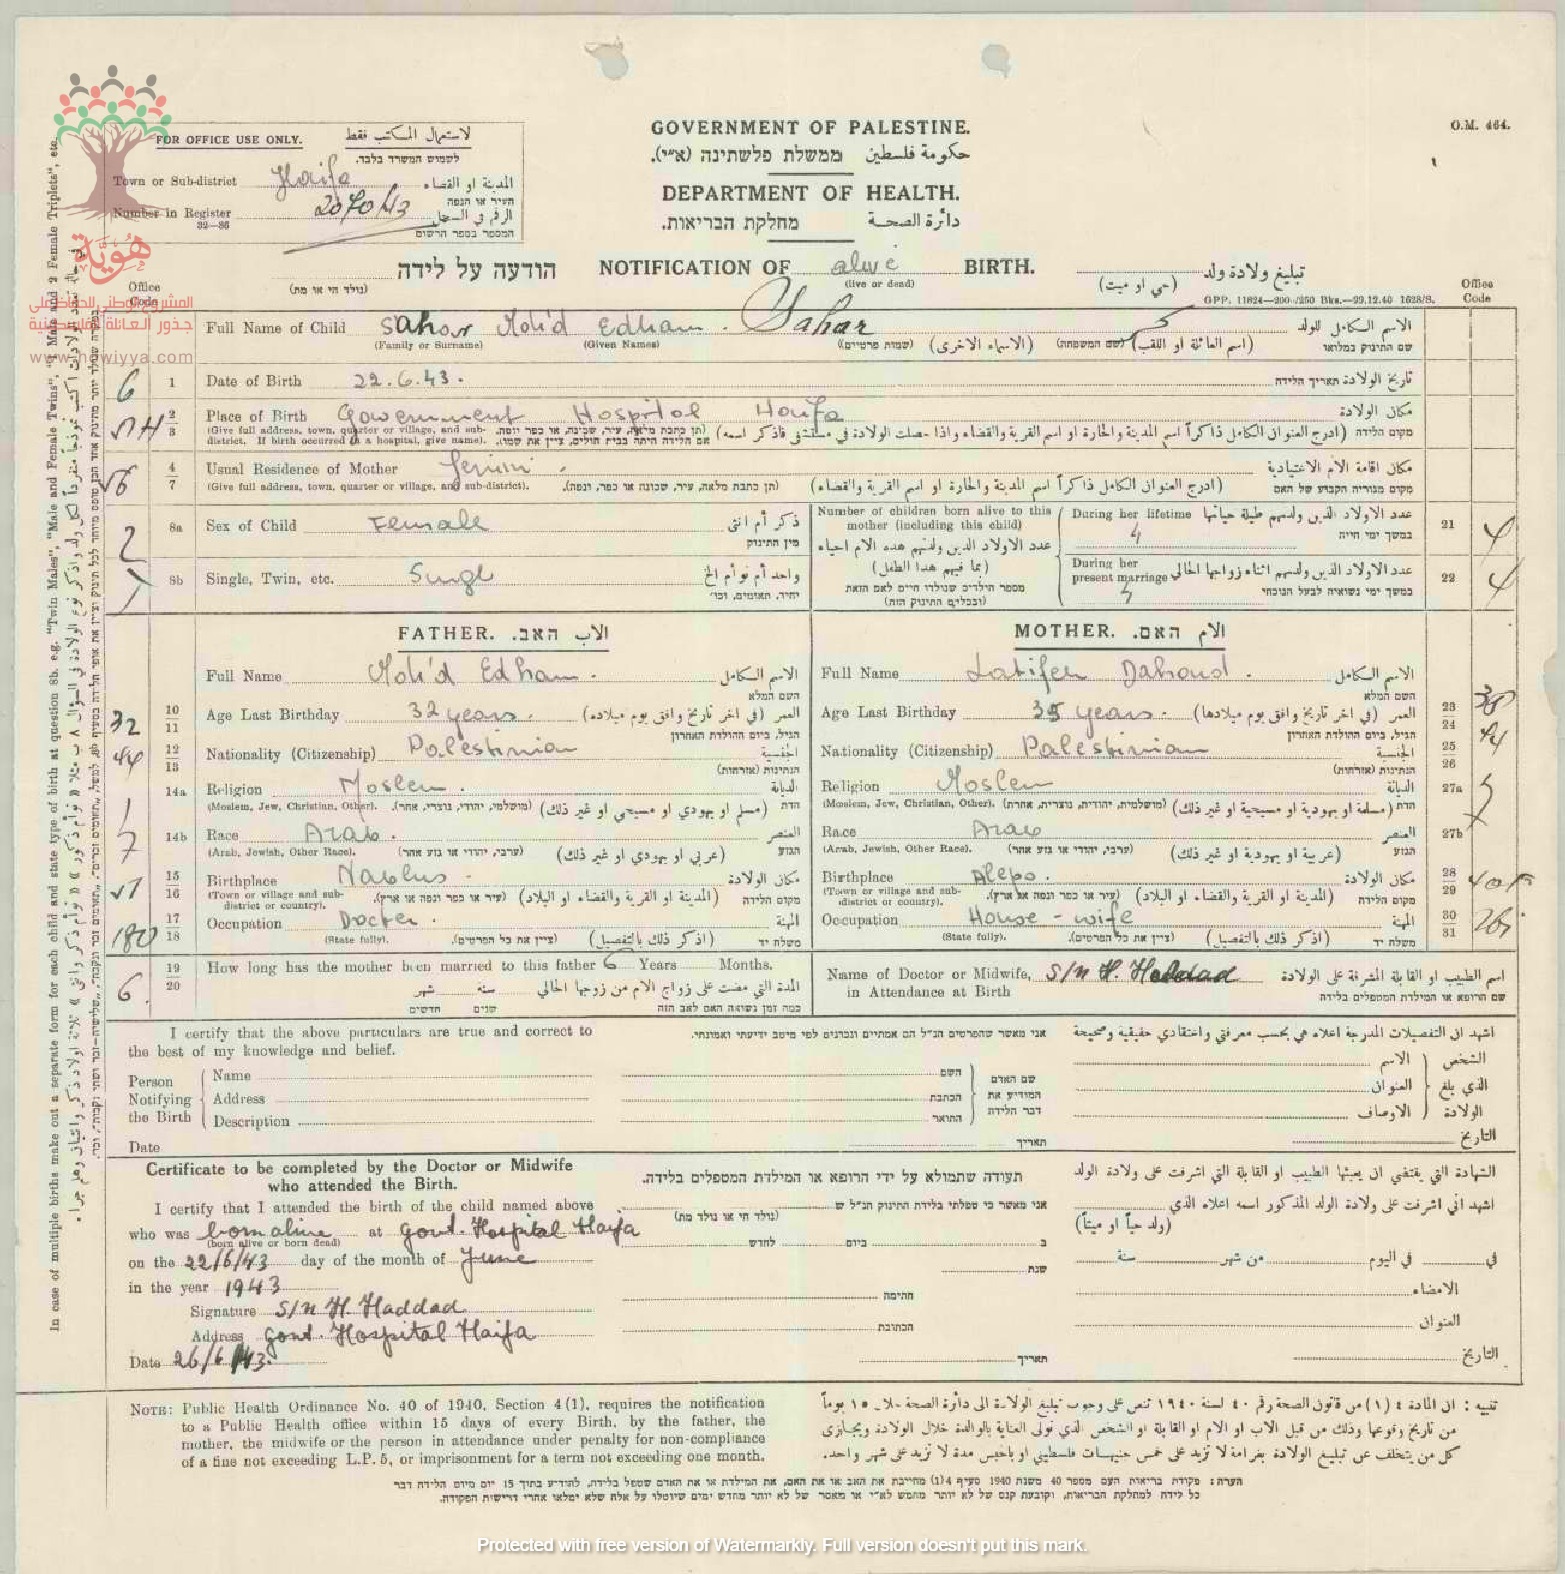 O.M. 464.
GOVERNMENT OF PALESTINE.
ממשלת פלשתינה (א״י). حكومة فلسطين
DEPARTMENT OF HEALTH.
מחלקת הבריאות. دائرة الصحة
FOR OFFICE USE ONLY. لاستعمال المكتب فقط
לשמוש המשרד בלבד.
Town or Sub-district Haifa المدينة او القضاء
העיר או הנפה
Number in Register 2070/43 الرقم في السجل
32—36 המספר בספר הרשום
הודעה על לידה NOTIFICATION OF alive BIRTH. تبليغ ولادة ولد
(נולד חי או מת) (live or dead) (حي او ميت)
GPP. 11624—200/250 Bks.—29.12.40 1628/8.
Office Code
Office Code
هُويّة
المشروع الوطني للحفاظ على
جذور العائلة الفلسطينية
www.howiyya.com
Full Name of Child Sahar Moh'd Edham. Sahar سحر الاسم الكامل للولد
(Family or Surname) (Given Names) (שמות פרטיים) (الاسماء الاخرى) (שם המשפחה) (اسم العائلة او اللقب) שם התינוק במלואו
6 1 Date of Birth 22.6.43. تاريخ الولادة תאריך הלידה
2 3 Place of Birth Government Hospital Haifa مكان الولادة
(Give full address, town, quarter or village, and sub-district. If birth occurred in a hospital, give name). (תן כתבת מלאה, עיר, שכונה, או כפר ונפה. אם הלידה היתה בבית חולים, ציין את שמו). (ادرج العنوان الكامل ذاكراً اسم المدينة والحارة او اسم القرية والقضاء واذا حصلت الولادة في مستشفى فاذكر اسمه) מקום הלידה
4 7 Usual Residence of Mother Jenin. مكان اقامة الام الاعتيادية
(Give full address, town, quarter or village, and sub-district). (תן כתבת מלאה, עיר, שכונה או כפר, ונפה). (ادرج العنوان الكامل ذاكراً اسم المدينة والحارة او اسم القرية والقضاء) מקום מגוריה הקבוע של האם
2 8a Sex of Child Female ذكر أم انثى
מין התינוק
1 8b Single, Twin, etc. Single واحد أم توأم الخ
יחיד, תאומים, וכו׳
Number of children born alive to this mother (including this child)
عدد الاولاد الذين ولدتهم هذه الام احياء
(بما فيهم هذا الطفل)
מספר הילדים שנולדו חיים לאם הזאת
(ובכללם התינוק הזה)
During her lifetime عدد الاولاد الذين ولدتهم طيلة حياتها 21 4
4 במשך ימי חייה
During her present marriage عدد الاولاد الذين ولدتهم اثناء زواجها الحالي 22 4
במשך ימי נשואיה לבעל הנוכחי
FATHER. האב. الاب
Full Name Moh'd Edham. الاسم الكامل
השם המלא
32 10 11 Age Last Birthday 32 years. العمر (في اخر تاريخ وافق يوم ميلاده)
הגיל, ביום ההולדת האחרון
44 12 13 Nationality (Citizenship) Palestinian الجنسية
הנתינות (אזרחות)
1 14a Religion Moslem. الديانة
(Moslem, Jew, Christian, Other). (מושלמי, יהודי, נוצרי, אחר). (مسلم او يهودي او مسيحي او غير ذلك) הדת
14b Race Arab. العنصر
(Arab, Jewish, Other Race). (ערבי, יהודי או גזע אחר) (عربي او يهودي او غير ذلك) הגזע
15 16 Birthplace Nablus. مكان الولادة
(Town or village and sub-district or country). (עיר או כפר ונפה או ארץ). (المدينة او القرية والقضاء او البلاد) מקום הלידה
180 17 18 Occupation Docter. المهنة
(State fully). (ציין את כל הפרטים). (اذكر ذلك بالتفصيل) משלח יד
MOTHER. האם. الام
Full Name Latifeh Dahoud. الاسم الكامل
השם המלא
Age Last Birthday 35 years. العمر (في اخر تاريخ وافق يوم ميلادها) 23 24
הגיל, ביום ההולדת האחרון
Nationality (Citizenship) Palestinian الجنسية 25 26 44
הנתינות (אזרחות)
Religion Moslem الديانة 27a
(Moslem, Jew, Christian, Other). (מושלמית, יהודית, נוצרית, אחרת). (مسلمة او يهودية او مسيحية او غير ذلك) הדת
Race Arab العنصر 27b
(Arab, Jewish, Other Race). (ערבי, יהודי או גזע אחר) (عربية او يهودية او غير ذلك) הגזע
Birthplace Aleppo. مكان الولادة 28 29
(Town or village and sub-district or country). (עיר או כפר ונפה או ארץ). (المدينة او القرية والقضاء او البلاد) מקום הלידה
Occupation House - wife المهنة 30 31
(State fully). (ציין את כל הפרטים). (اذكر ذلك بالتفصيل) משלח יד
6. 19 20 How long has the mother been married to this father 6 Years Months.
المدة التي مضت على زواج الام من زوجها الحالي سنة شهر
כמה זמן נשואה האם לאב הזה שנים חדשים
Name of Doctor or Midwife, S/N H. Haddad اسم الطبيب او القابلة المشرفة على الولادة
in Attendance at Birth שם הרופא או המילדת המטפלים בלידה
I certify that the above particulars are true and correct to the best of my knowledge and belief.
אני מאשר שהפרטים הנ״ל הם אמתיים ונכונים לפי מיטב ידיעתי ואמונתי.
اشهد ان التفصيلات المدرجة اعلاه هي بحسب معرفتي واعتقادي حقيقية وصحيحة
Person Notifying the Birth
Name השם الاسم
Address הכתבת العنوان
Description התואר الاوصاف
שם האדם המודיע את דבר הלידה
الشخص الذي بلغ الولادة
Date תאריך التاريخ
Certificate to be completed by the Doctor or Midwife who attended the Birth.
תעודה שתמולא על ידי הרופא או המילדת המטפלים בלידה.
الشهادة التي يقتضي ان يعبئها الطبيب او القابلة التي اشرفت على ولادة الولد
I certify that I attended the birth of the child named above
who was born alive at Govt. Hospital Haifa
(born alive or born dead)
on the 22/6/43 day of the month of June
in the year 1943
Signature S/N H. Haddad
Address Govt. Hospital Haifa
Date 26/6/43.
אני מאשר כי טפלתי בלידת התינוק הנ״ל ש
(נולד חי או נולד מת)
ב ביום לחדש
שנת
חתימה
הכתובת
תאריך
اشهد اني اشرفت على ولادة الولد المذكور اسمه اعلاه الذي
(ولد حياً او ميتاً)
في في اليوم من شهر سنة
الامضاء
العنوان
التاريخ
NOTE: Public Health Ordinance No. 40 of 1940, Section 4 (1), requires the notification
to a Public Health office within 15 days of every Birth, by the father, the
mother, the midwife or the person in attendance under penalty for non-compliance
of a fine not exceeding L.P. 5, or imprisonment for a term not exceeding one month.
تنبيه : ان المادة ٤ (١) من قانون الصحة رقم ٤٠ لسنة ١٩٤٠ تنص على وجوب تبليغ الولادة الى دائرة الصحة خلال ١٥ يوماً
من تاريخ وقوعها وذلك من قبل الاب او الام او القابلة او الشخص الذي تولى العناية بالوالدة خلال الولادة ويجازى
كل من يتخلف عن تبليغ الولادة بغرامة لا تزيد على خمس جنيهات فلسطيني او بالحبس مدة لا تزيد على شهر واحد.
הערה: פקודת בריאות העם מספר 40 משנת 1940 סעיף 4(1) מחייבת את האב או את האם, את המילדת או את האדם שטפל בלידה, להודיע בתוך 15 יום מיום הלידה דבר
כל לידה למחלקת הבריאות, וקובעת קנס של לא יותר מחמש לא״י או מאסר של לא יותר מחדש ימים שיוטלו על אלה שלא ימלאו אחרי דרישות הפקודה.
In case of multiple births make out a separate form for each child and state type of birth at question 8b. e.g. "Twin Males", "Male and Female Twins", "1 Male and 2 Female Triplets", etc.
Protected with free version of Watermarkly. Full version doesn't put this mark.